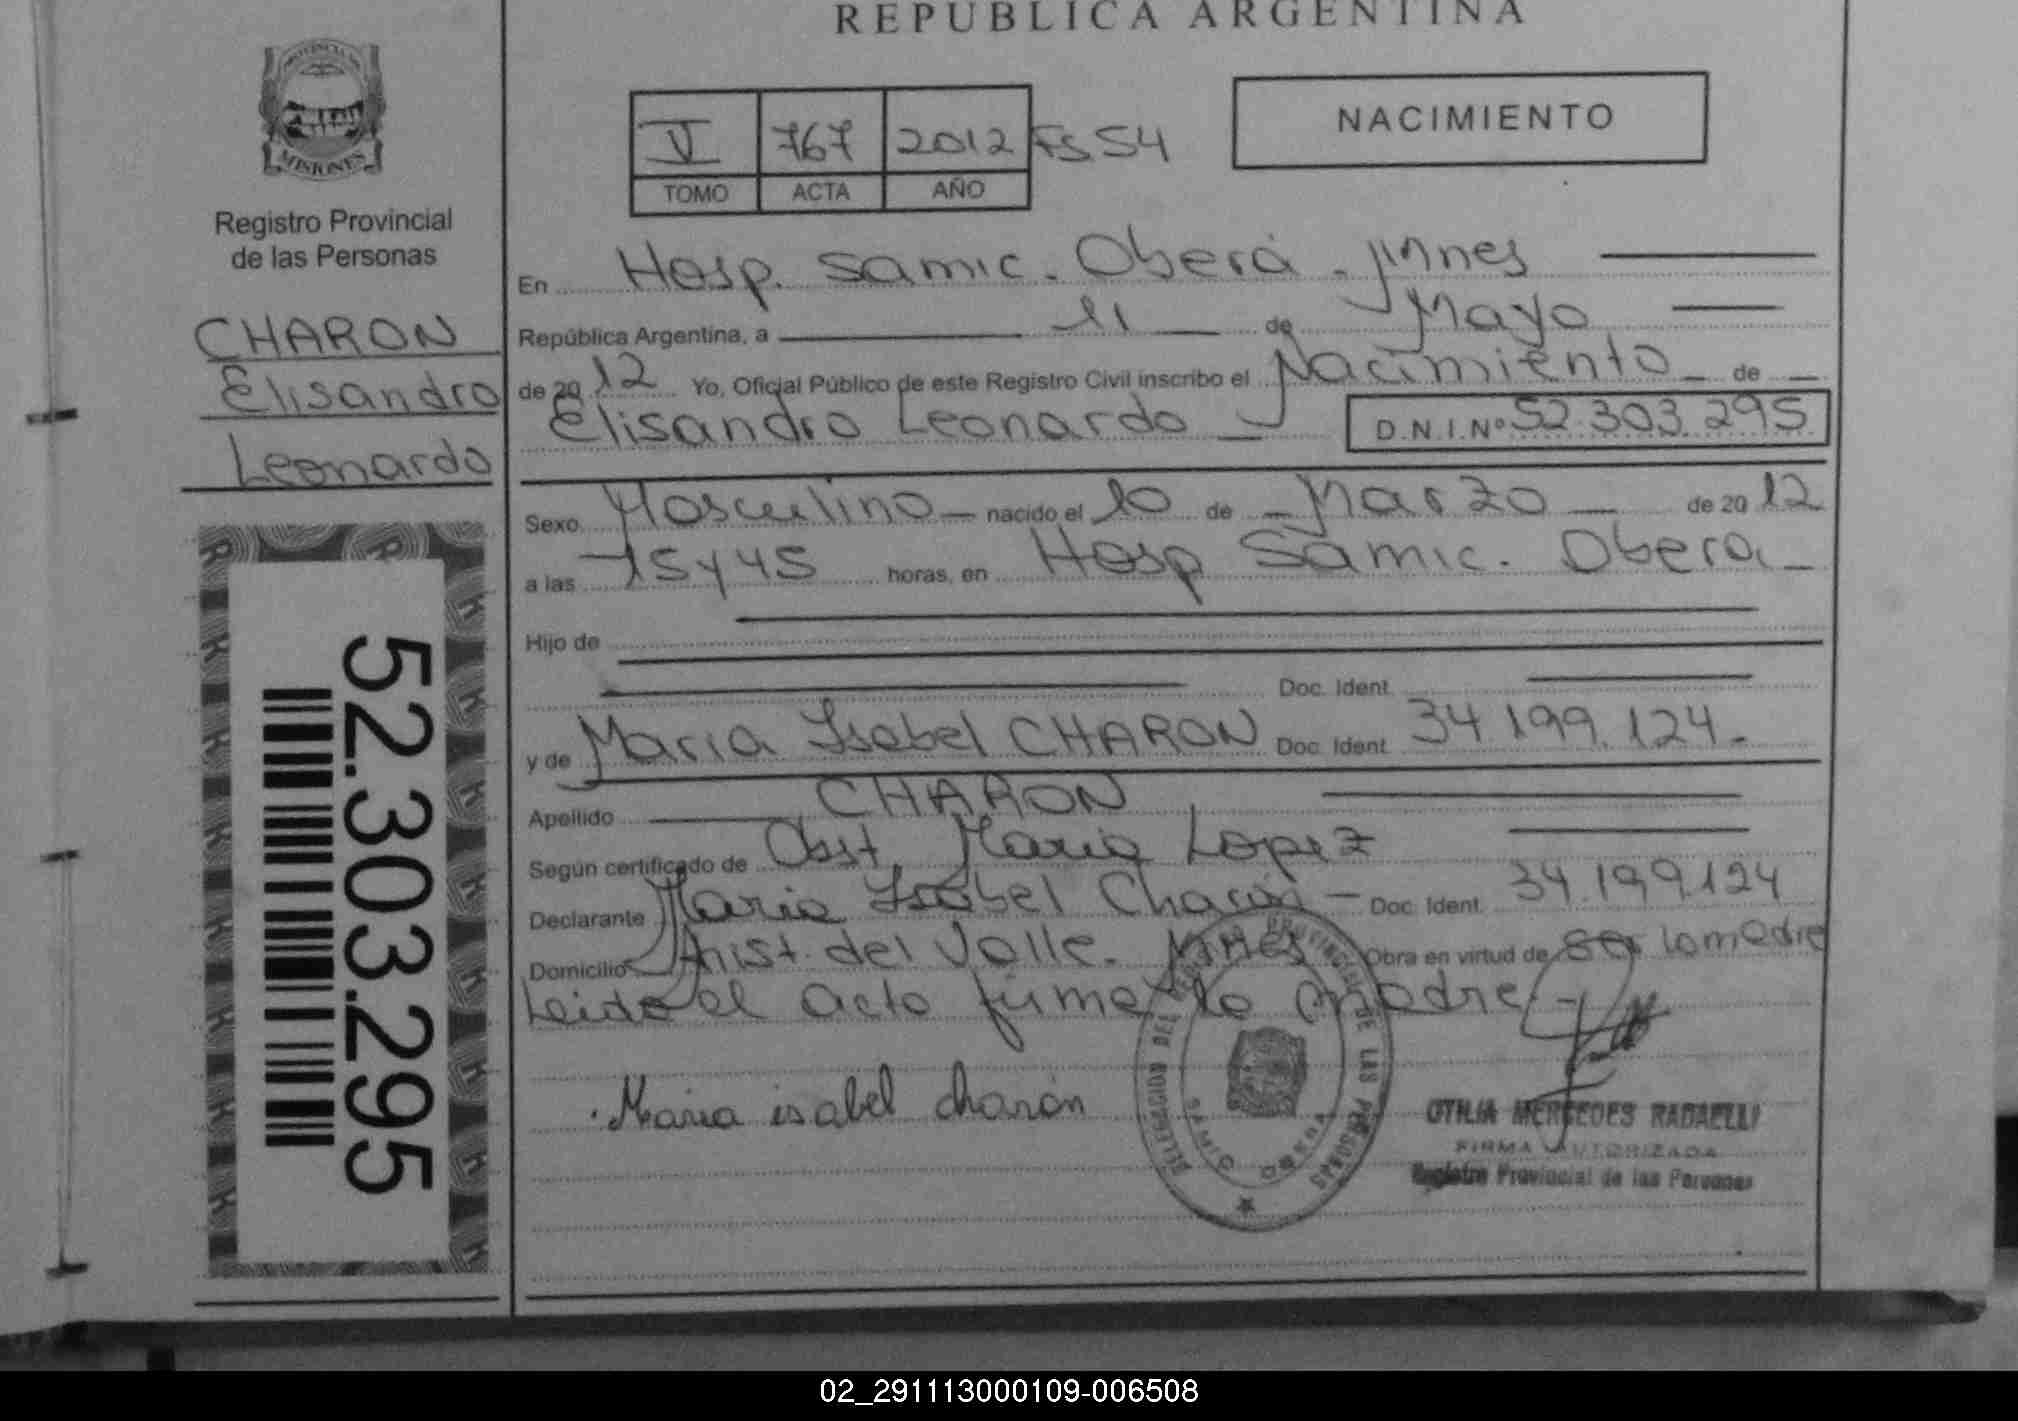 REPUBLICA ARGENTINA
MISIONES
Registro Provincial
de las Personas
CHARON
Elisandro
Leonardo
52.303.295
V 767 2012 Fs 54
TOMO ACTA AÑO
NACIMIENTO
En Hosp. Samic. Oberá. Mnes
República Argentina, a 11 de Mayo
de 2012 Yo, Oficial Público de este Registro Civil inscribo el Nacimiento de
Elisandro Leonardo D.N.I.Nº 52.303.295
Sexo Masculino nacido el 10 de Marzo de 2012
a las 15 y 45 horas, en Hosp Samic. Obera
Hijo de
Doc. Ident.
y de Maria Isabel CHARON Doc. Ident. 34 199.124.
Apellido CHARON
Según certificado de Obst. Maria Lopez
Declarante Maria Isabel Charón Doc. Ident. 34.199.124
Domicilio Arist. del Valle. Mnes Obra en virtud de ser la madre
Leido el acta firma la madre
Maria isabel charón
DELEGACION DEL REGISTRO PROVINCIAL DE LAS PERSONAS
SAMIC OBERA
OTILIA MERCEDES RADAELLI
FIRMA AUTORIZADA
Registro Provincial de las Personas
02_291113000109-006508